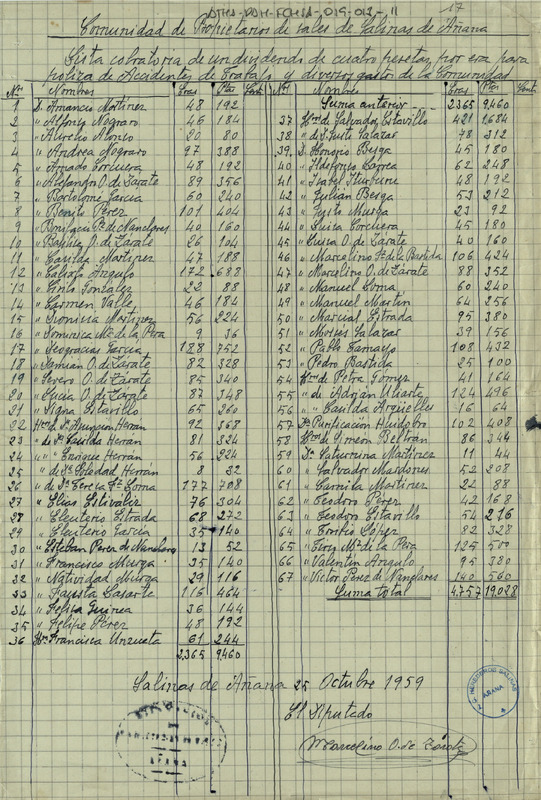 ATHA-DAH-FCHSA-019-012-11
17
Comunidad de Propietarios de sales de Salinas de Añana
Lista cobratoria de un dividendo de cuatro pesetas por era para
poliza de Accidentes de Trabajo y diversos gastos de la Comunidad
Nº Nombres Eras Ptas Cents
1 D. Amancio Martinez 48 192
2 " Alfonso Nograro 46 184
3 " Aurelio Alonso 20 80
4 " Andrea Nograro 97 388
5 " Amado Corcuera 48 192
6 " Alejandro O. de Zarate 89 356
7 " Bartolome Garcia 60 240
8 " Benito Perez 101 404
9 " Bonifacio P. de Nanclares 40 160
10 " Basilia O. de Zarate 26 104
11 " Casilda Martinez 47 188
12 " Calixto Angulo 172 688
13 " Cirilo Gonzalez 22 88
14 " Carmen Valle 46 184
15 " Dionisia Martinez 56 224
16 " Domenica Mª de la Pera 9 36
17 " Deogracias Garcia 188 752
18 " Damian O. de Zarate 82 328
19 " Severo O. de Zarate 85 340
20 " Lucia O. de Zarate 87 348
21 " Digna Estavillo 65 260
22 Hros de Dª Asuncion Herran 92 368
23 " de Dª Casilda Herran 81 324
24 " " Enrique Herran 56 224
25 " de Dª Soledad Herran 8 32
26 " de Dª Teresa Fz Loma 177 708
27 " Elias Estivaliz 76 304
28 " Eleuterio Estrada 68 272
29 " Eleuterio Garcia 35 140
30 " Esteban Perez de Nanclares 13 52
31 " Francisco Murga 35 140
32 " Natividad Murga 29 116
33 " Fausta Casarte 116 464
34 " Felisa Guinea 36 144
35 " Felipe Pérez 48 192
36 Hros Francisca Unzueta 61 244
2365 9460
Nº Nombres Eras Ptas Cents
Suma anterior 2365 9,460
37 Hros de Salvador Estavillo 421 1684
38 " de Justo Salazar 78 312
39 D. Honorio Berga 45 180
40 " Ildefonso Correa 62 248
41 " Isabel Iturburu 48 192
42 " Julian Berga 53 212
43 " Justo Murga 23 92
44 " Luisa Corcuera 45 180
45 " Luisa O. de Zarate 40 160
46 " Marcelino Fz de la Bastida 106 424
47 " Marcelino O. de Zárate 88 352
48 " Manuel Loma 60 240
49 " Manuel Martin 64 256
50 " Marcial Estrada 95 380
51 " Moises Salazar 39 156
52 " Pablo Tamayo 108 432
53 " Pedro Bastida 25 100
54 Hros de Petra Gomez 41 164
55 " de Adrian Uriarte 124 496
56 " Casilda Argüelles 16 64
57 Dª Purificación Huidobro 102 408
58 Hros de Simeon Beltrán 86 344
59 Dª Saturnina Martinez 11 44
60 " Salvador Mardones 52 208
61 " Camila Martinez 22 88
62 " Teodoro Perez 42 168
63 " Teodoro Estavillo 54 216
64 " Toribio López 82 328
65 " Mª de la Pera 125 500
66 " Valentin Angulo 95 380
67 " Victor Perez de Nanclares 140 560
Suma total 4.757 19,028
Salinas de Añana 25 Octubre 1959
El Diputado
Marcelino O. de Zárate
AÑANA
AÑANA